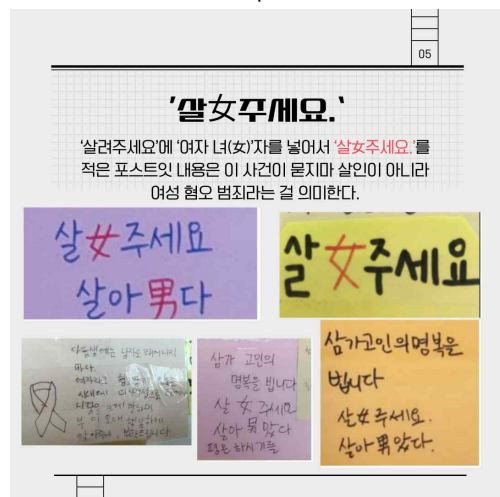 05
'살女주세요.'
'살려주세요'에 '여자 녀(女)'자를 넣어서 '살女주세요.'를
적은 포스트잇 내용은 이 사건이 묻지마 살인이 아니라
여성 혐오 범죄라는 걸 의미한다.
살女주세요
살아男다
살女주세요
다음생에는
삼가 고인의
명복을 빕니다
살女주세요
살아男았다
삼가고인의명복을
빕니다
살女주세요.
살아男았다.